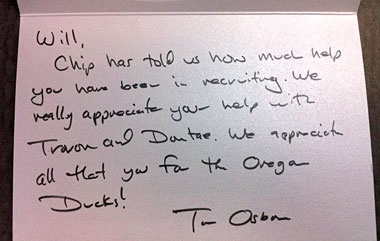 Will,
Chip has told us how much help
you have been in recruiting. We
really appreciate your help with
Travon and Dontae. We appreciate
all that you for the Oregon
Ducks!
Tom Osborne